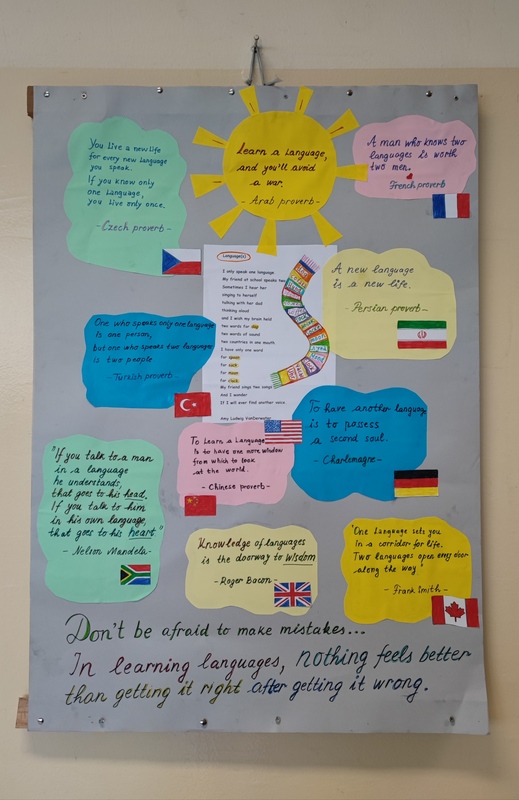 You live a new life
for every new language
you speak.
If you know only
one language,
you live only once.
- Czech proverb -
Learn a language,
and you'll avoid
a war.
- Arab proverb -
A man who knows two
languages is worth
two men.
French proverb
Language(s)
I only speak one language.
My friend at school speaks two.
Sometimes I hear her
singing to herself
talking with her dad
thinking aloud
and I wish my brain held
two words for dog
two words of sound
two countries in one mouth.
I have only one word
for
for
for moon
for
My friend sings two songs
And I wonder
if I will ever find another voice.
Amy Ludwig VanDerwater
A new language
is a new life.
- Persian proverb -
One who speaks only one language
is one person,
but one who speaks two languages
is two people
- Turkish proverb -
To have another language
is to possess
a second soul.
- Charlemagne -
To Learn a Language
is to have one more window
from which to look
at the world.
- Chinese proverb -
"If you talk to a man
in a language
he understands,
that goes to his head.
If you talk to him
in his own language,
that goes to his heart"
- Nelson Mandela -
Knowledge of languages
is the doorway to wisdom
- Roger Bacon -
"One language sets you
in a corridor for life.
Two languages open every door
along the way"
- Frank Smith -
Don't be afraid to make mistakes...
In learning languages, nothing feels better
than getting it right after getting it wrong.